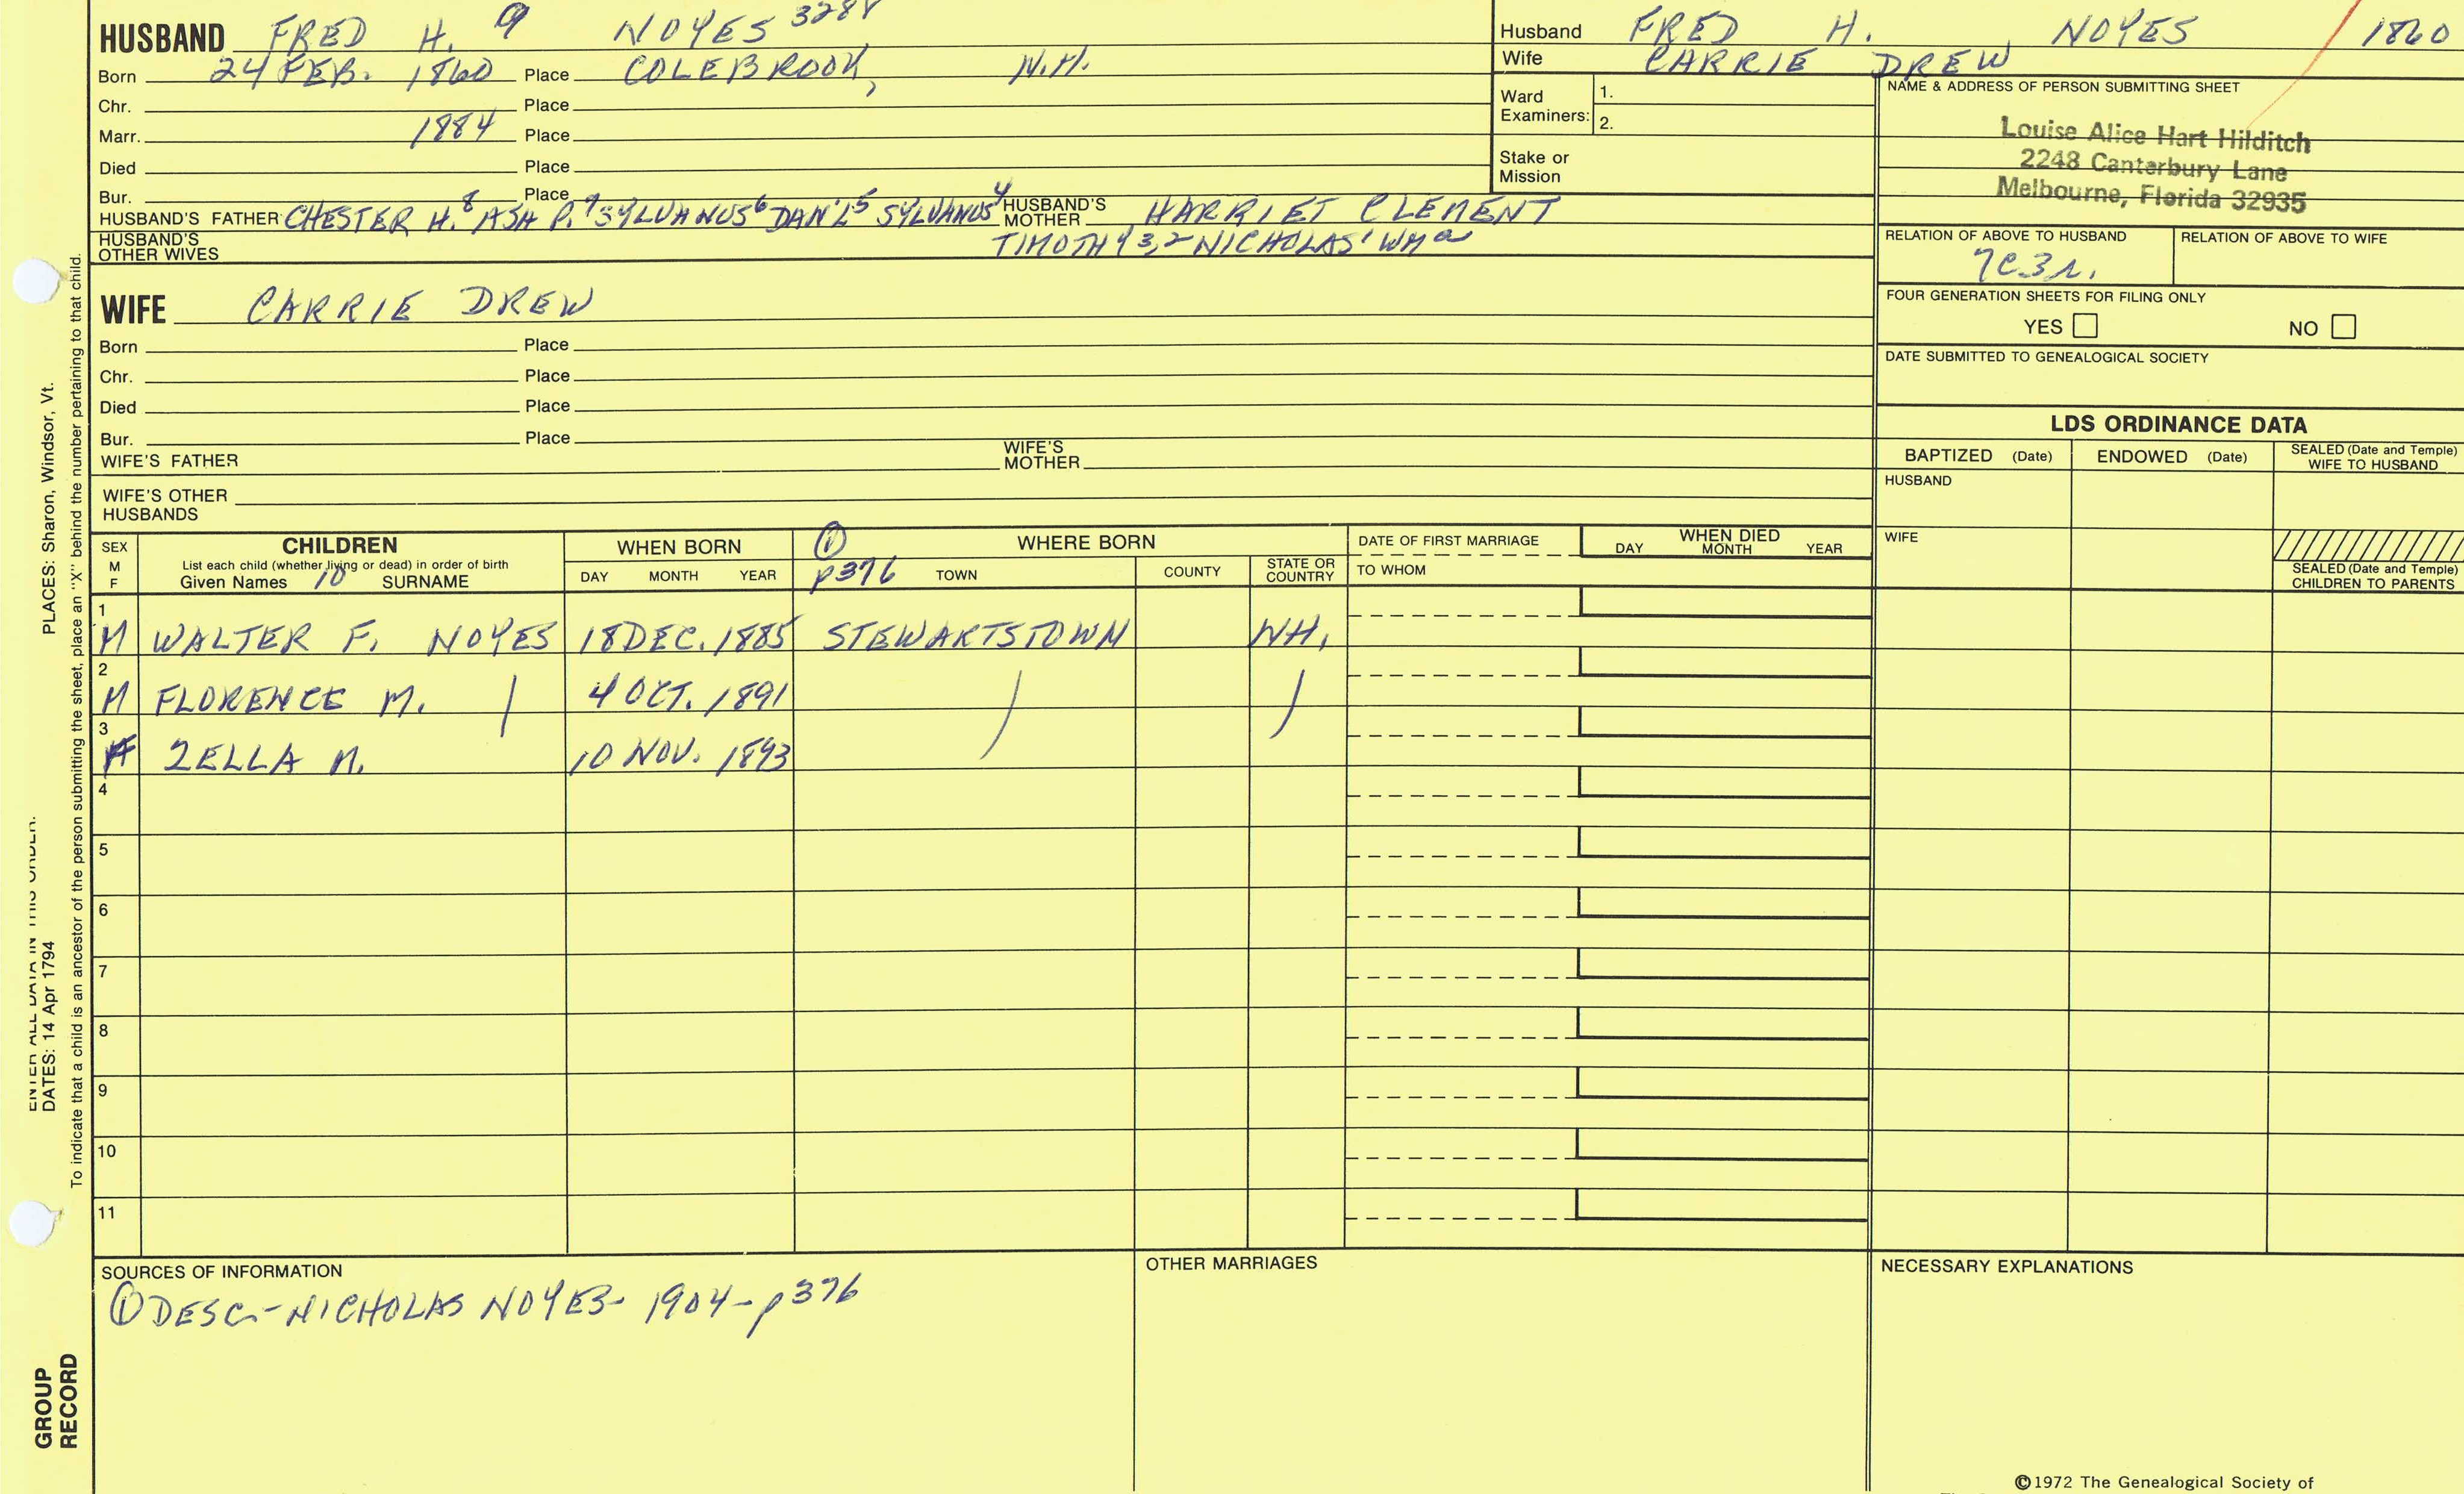 HUSBAND FRED H. 9 NOYES 3288
Born 24 FEB. 1860 Place COLEBROOK, N.H.
Chr. Place
Marr. 1884 Place
Died Place
Bur. Place
HUSBAND'S FATHER CHESTER H. 8 ASA P. 7 SYLVANUS 6 DAN'L 5 SYLVANUS 4 HUSBAND'S MOTHER HARRIET CLEMENT
HUSBAND'S OTHER WIVES TIMOTHY 3, 2 NICHOLAS 1 WM a
Husband FRED H. NOYES / 1860
Wife CARRIE DREW
Ward Examiners: 1.
2.
Stake or Mission
NAME & ADDRESS OF PERSON SUBMITTING SHEET
Louise Alice Hart Hilditch
2248 Canterbury Lane
Melbourne, Florida 32935
RELATION OF ABOVE TO HUSBAND RELATION OF ABOVE TO WIFE
7C3r.
FOUR GENERATION SHEETS FOR FILING ONLY
YES NO
DATE SUBMITTED TO GENEALOGICAL SOCIETY
WIFE CARRIE DREW
Born Place
Chr. Place
Died Place
Bur. Place
WIFE'S FATHER WIFE'S MOTHER
WIFE'S OTHER HUSBANDS
LDS ORDINANCE DATA
BAPTIZED (Date) ENDOWED (Date) SEALED (Date and Temple) WIFE TO HUSBAND
HUSBAND
WIFE
SEALED (Date and Temple) CHILDREN TO PARENTS
SEX M F
CHILDREN
List each child (whether living or dead) in order of birth
Given Names 10 SURNAME
WHEN BORN
DAY MONTH YEAR
① p376
WHERE BORN
TOWN COUNTY STATE OR COUNTRY
DATE OF FIRST MARRIAGE
TO WHOM
WHEN DIED
DAY MONTH YEAR
1 M WALTER F. NOYES 18 DEC. 1885 STEWARTSTOWN NH.
2 M FLORENCE M. 4 OCT. 1891
3 F ZELLA M. 10 NOV. 1893
4
5
6
7
8
9
10
11
SOURCES OF INFORMATION
① DESC.-NICHOLAS NOYES- 1904-p376
OTHER MARRIAGES
NECESSARY EXPLANATIONS
©1972 The Genealogical Society of
PLACES: Sharon, Windsor, Vt.
To indicate that a child is an ancestor of the person submitting the sheet, place an "X" behind the number pertaining to that child.
ENTER ALL DATA IN THIS ORDER:
DATES: 14 Apr 1794
GROUP RECORD